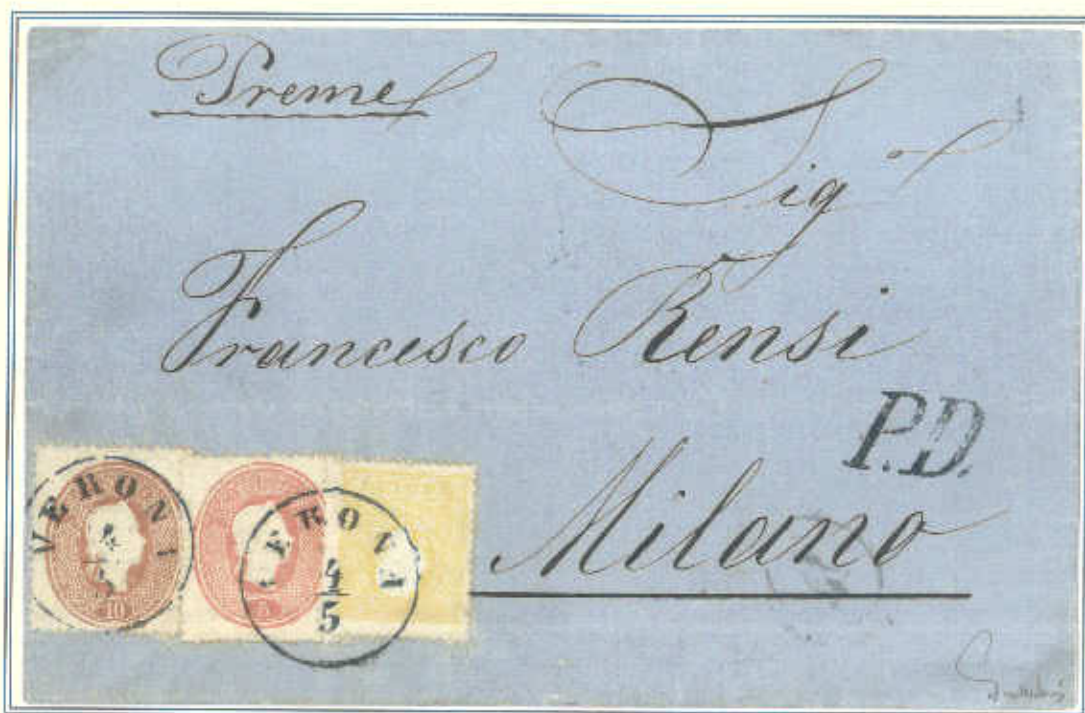 Preme
Sig
Francesco Rensi
P.D.
Milano
VERONA
4
5
10
VERONA
4
5
5